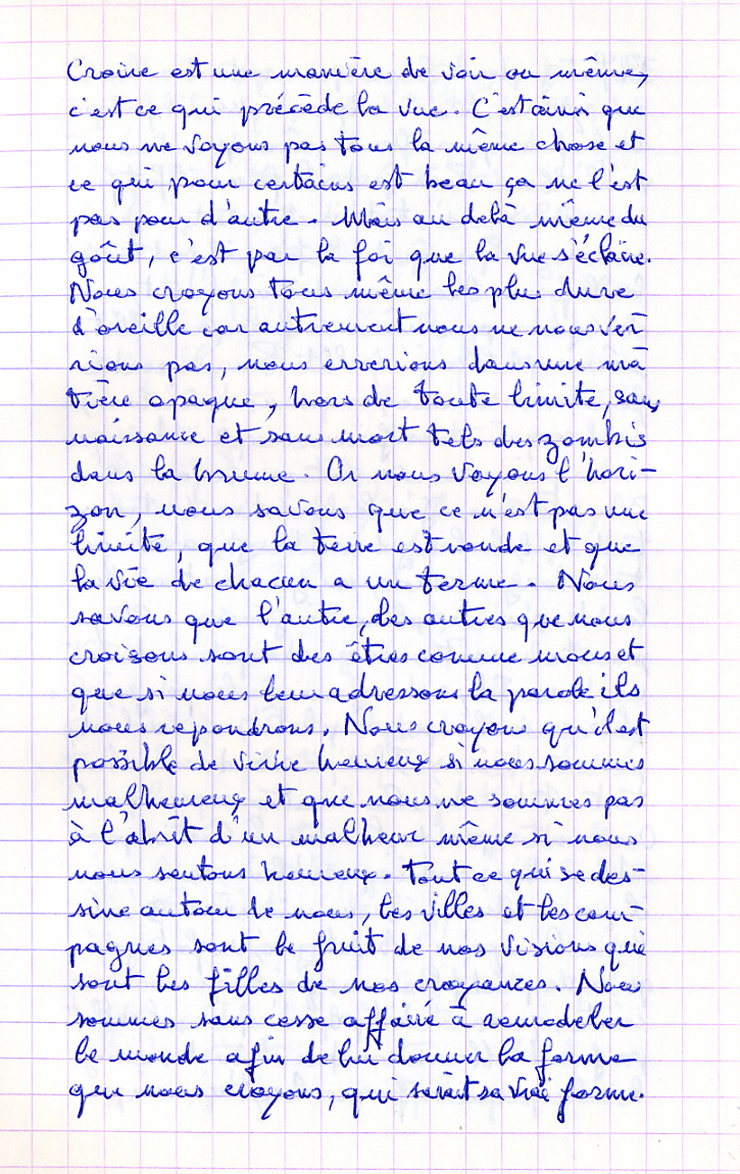 Croire est une manière de voir ou même,
c'est ce qui précède la vue. C'est ainsi que
nous ne voyons pas tous la même chose et
ce qui pour certains est beau ça ne l'est
pas pour d'autre. Mais au delà même du
goût, c'est par la foi que la vue s'éclaire.
Nous croyons tous même les plus dure
d'oreille car autrement nous ne nous ver
rions pas, nous errerions dans une ma
tière opaque, hors de toute limite, sans
naissance et sans mort tels des zombis
dans la brume. Or nous voyons l'hori-
zon, nous savons que ce n'est pas une
limite, que la terre est ronde et que
la vie de chacun a un terme. Nous
savons que l'autre, les autres que nous
croisons sont des êtres comme nous et
que si nous leur adressons la parole ils
nous repondrons. Nous croyons qu'il est
possible de vivre heureux si nous sommes
malheureux et que nous ne sommes pas
à l'abrît d'un malheur même si nous
nous sentons heureux. Tout ce qui se des-
sine autour de nous, les villes et les cam-
pagnes sont le fruit de nos visions qui
sont les filles de nos croyances. Nous
sommes sans cesse affairé à remodeler
le monde afin de lui donner la forme
que nous croyons, qui serait sa vraie forme.